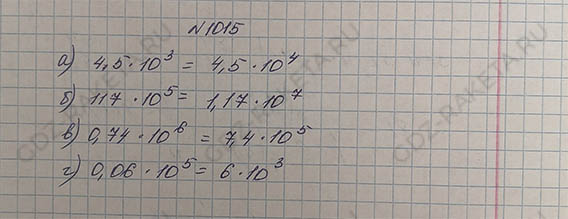 №1015
а) 4,5 · 10³ = 4,5 · 10⁴
б) 117 · 10⁵ = 1,17 · 10⁷
в) 0,74 · 10⁶ = 7,4 · 10⁵
г) 0,06 · 10⁵ = 6 · 10³
GDZ-RAKETA.RU
GDZ-RAKETA.RU